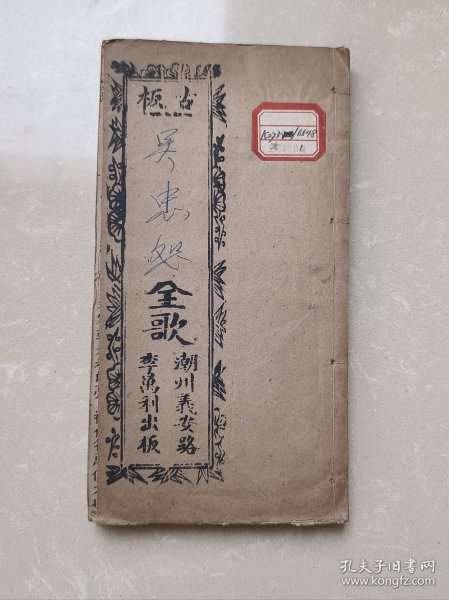 古板
吴忠恕
全歌
潮州義安路
李萬利出板
孔夫子旧书网
www.kongfz.com